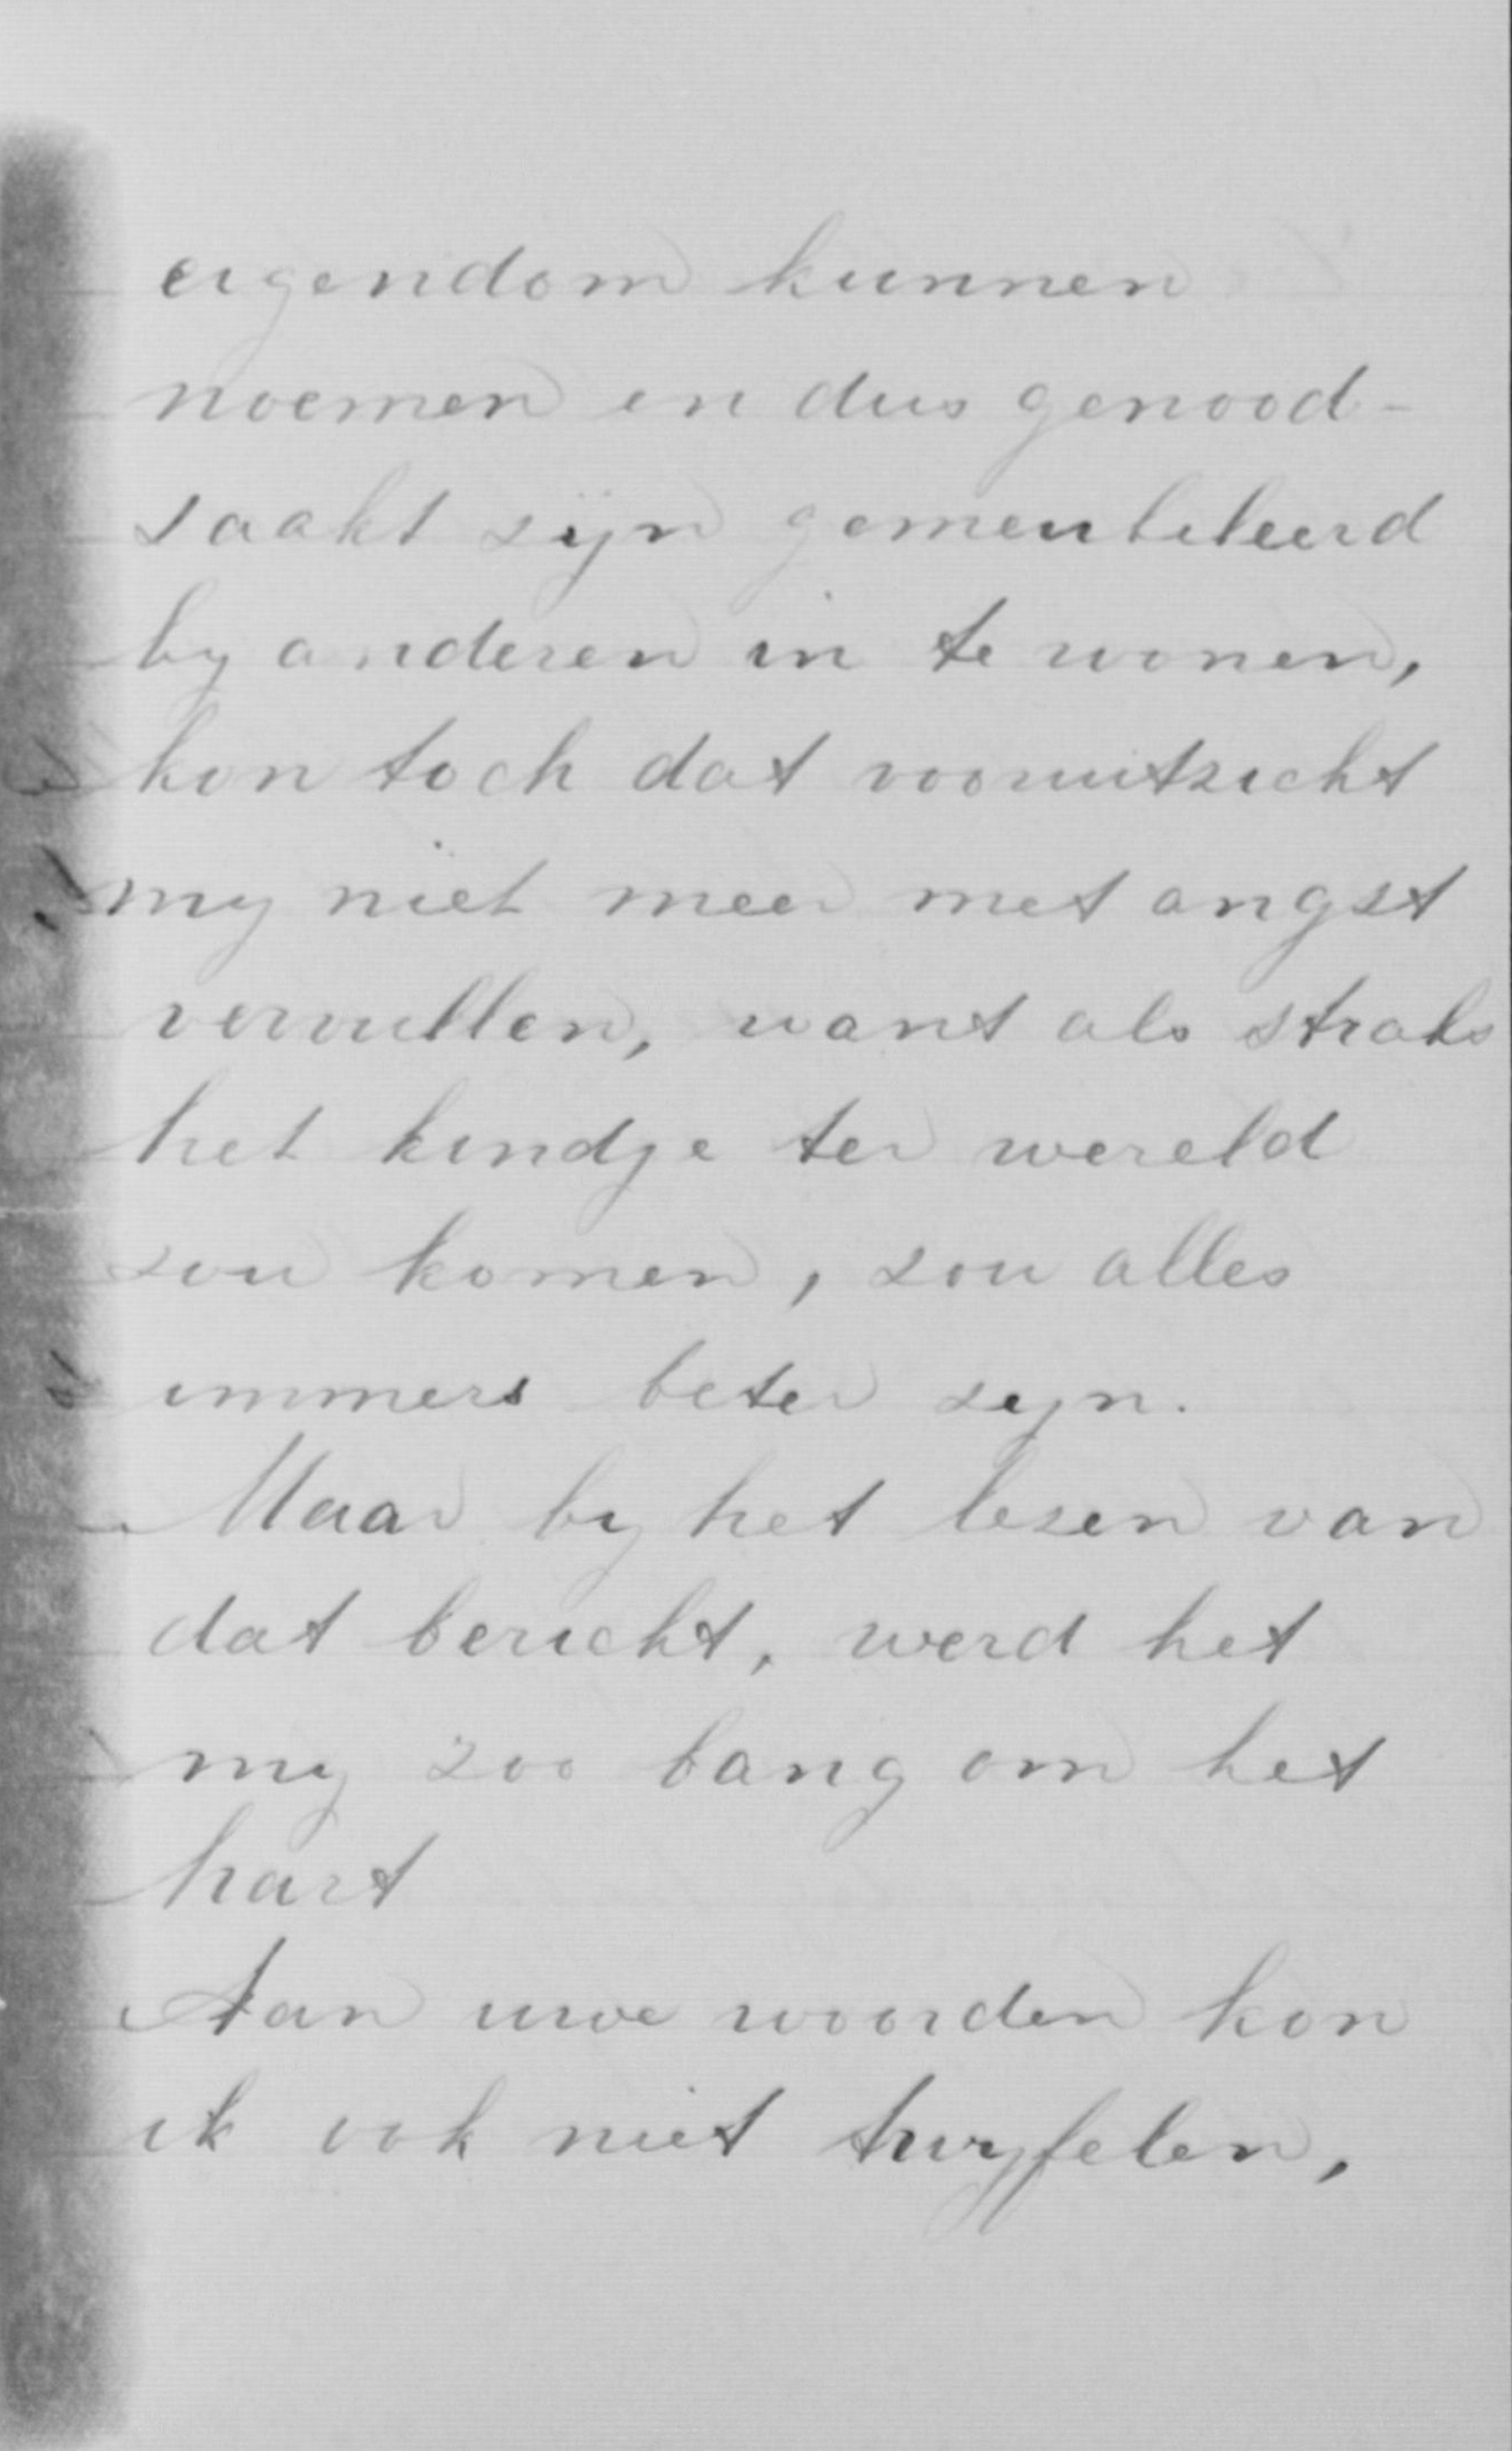 eigendom kunnen
noemen en dus genood-
zaakt zijn gemeubeleerd
by anderen in te wonen,
kon toch dat vooruitzicht
my niet meer met angst
vervullen, want als straks
het kindje ter wereld
zou komen, zou alles
immers beter zyn.
Maar by het lezen van
dat bericht, werd het
my zoo bang om het
hart
Aan uwe woorden kon
ik ook niet twyfelen,